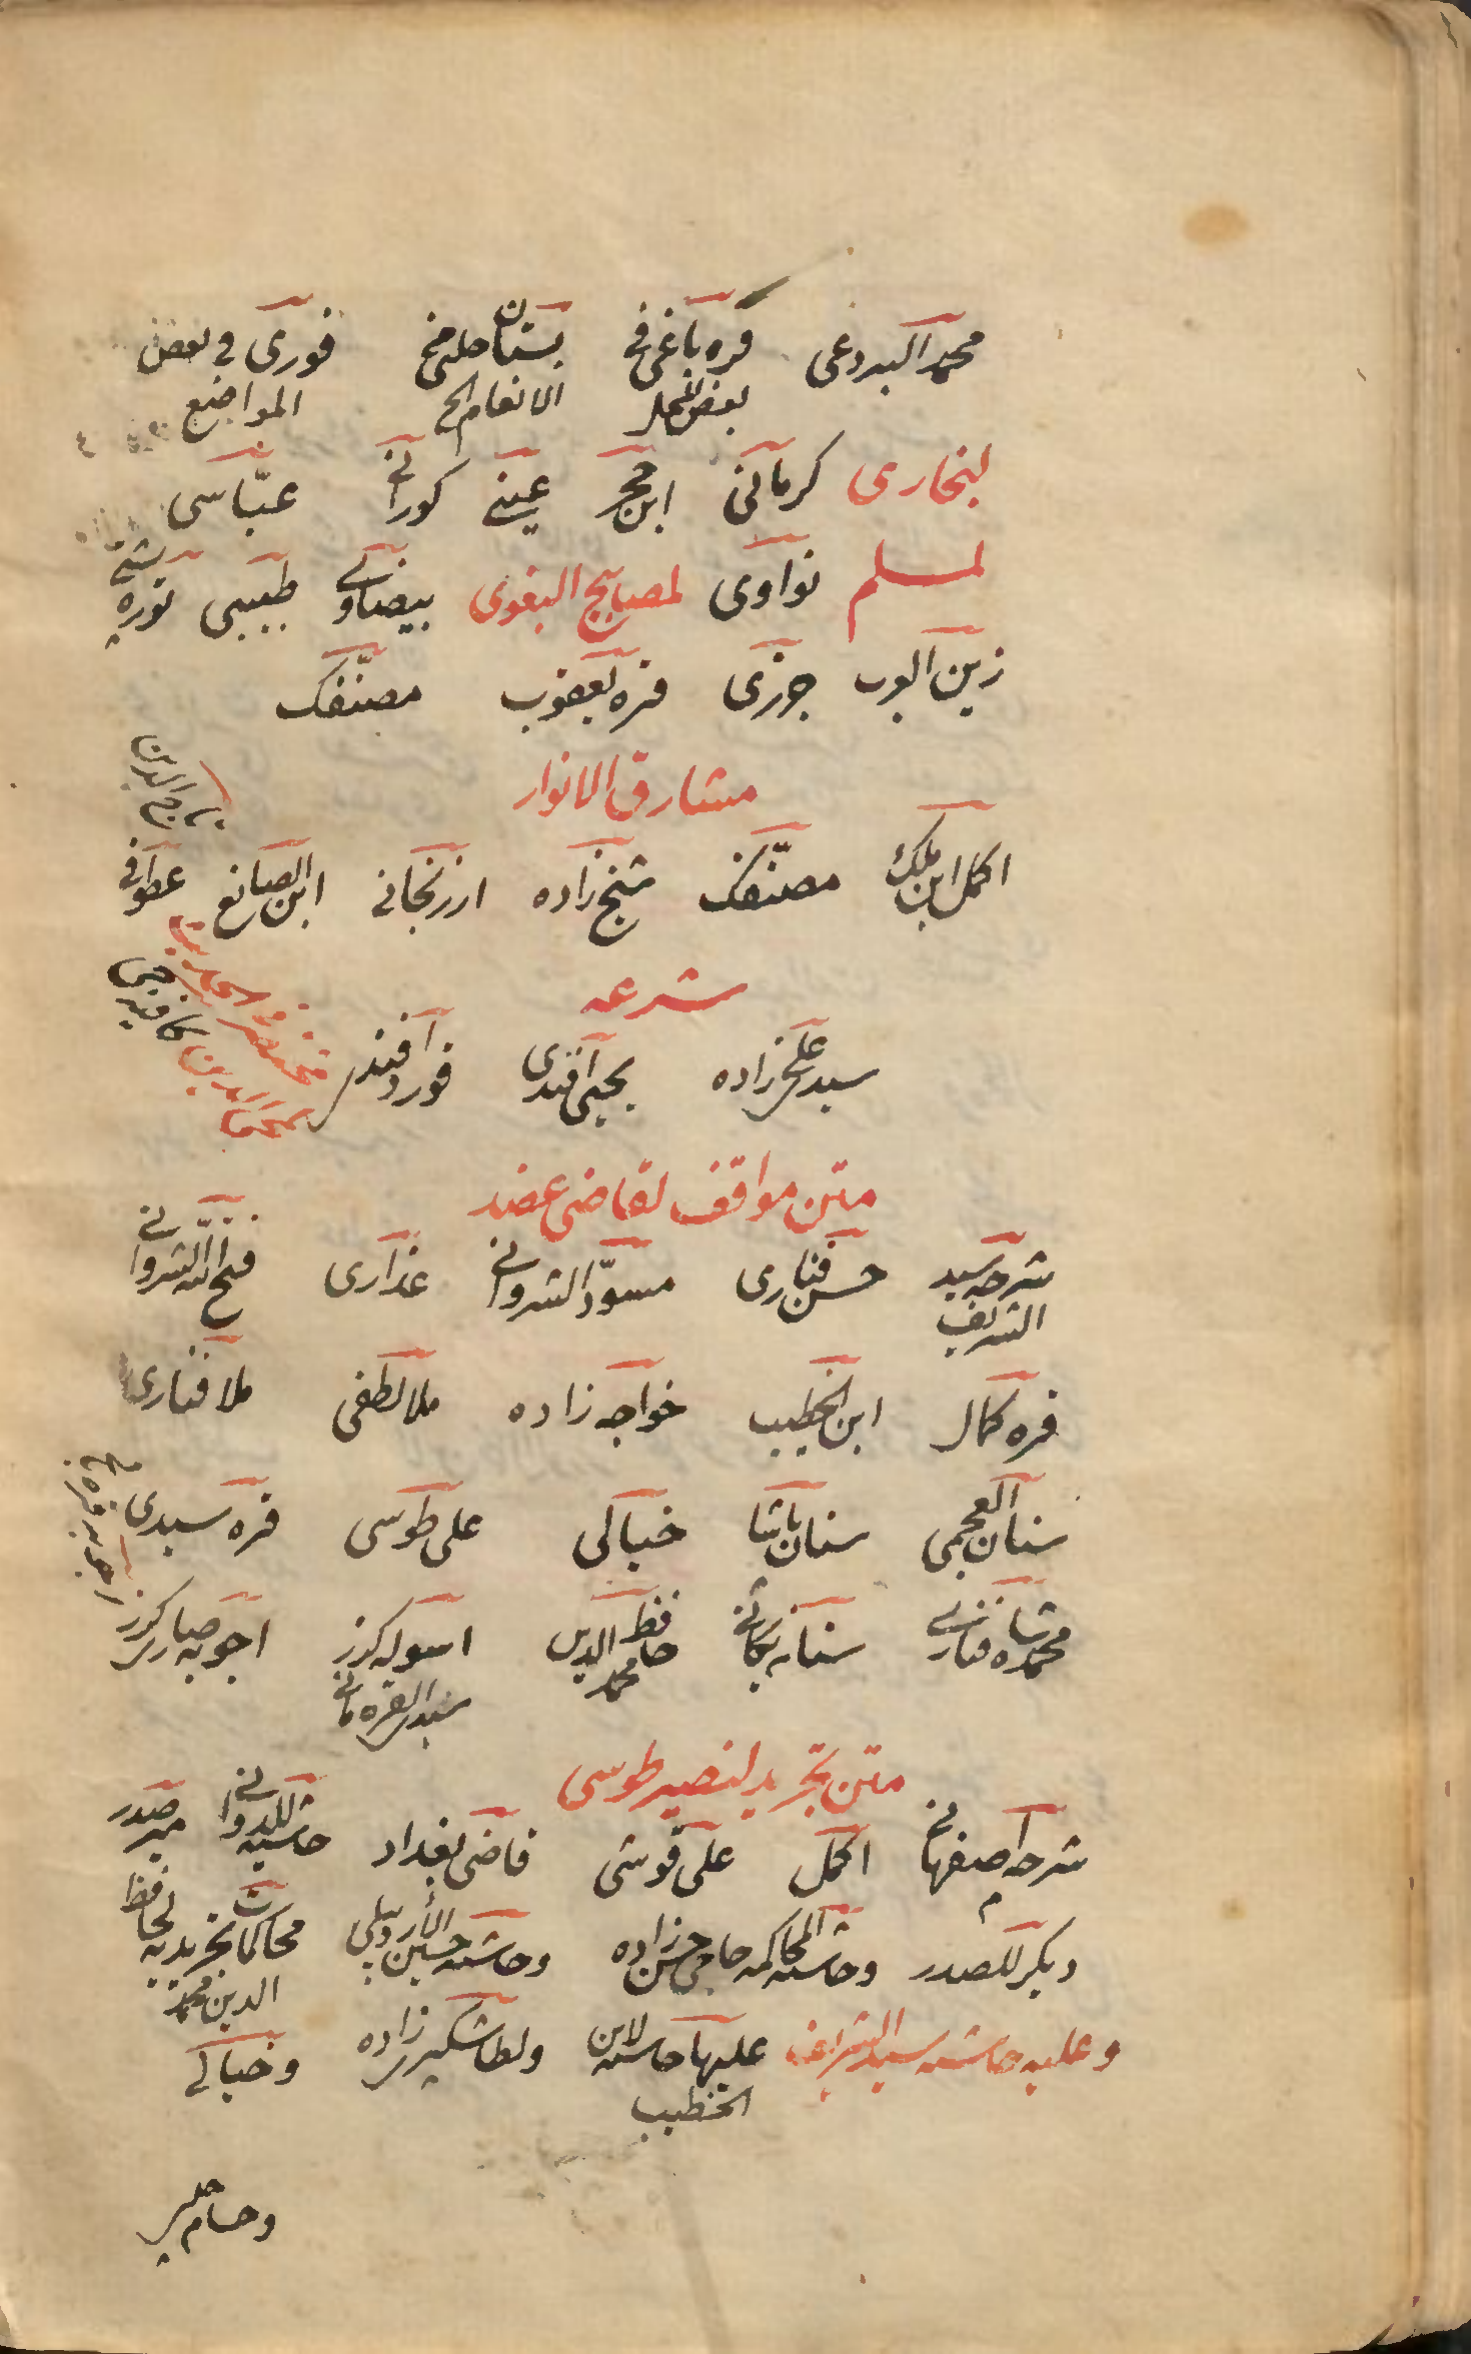 محمد البردعى قره باغى فى بعض المحل بستان حلبى من الانعام الخ فورى فى بعض المواضع
لبخارى كرمانى ابن حجر عينى كورانى عبّاسى
لمسلم نواوى لمصابيح البغوى بيضاوى طيبى توره پشتى
زين العرب جزرى قره يعقوب مصنّفك
مشارق الانوار
اكمل ابن ملك مصنّفك شيخ زاده ارزنجانى ابن الصايغ عطوافى
شرعه
سيد على زاده يحيى افندى قورد افندى
متن مواقف لقاضى عضد
شرحه سيد الشريف حسن فنارى مسعود الشروانى عذارى فتح الله الشروانى
قره كمال ابن الخطيب خواجه زاده ملا لطفى ملا فنارى
سنان العجمى سنان پاشا خيالى على طوسى قره سيدى
محمد شاه فنارى سنان يكانى حافظ الدين محمد اسوله كرز سيدى القره مانى اجوبه صارى كرز
متن تجريد لنصير طوسى
شرحه اصفهانى اكمل على قوشى قاضى بغداد حاشيه للدوانى مير صدر
ديكر للصدر وحاشيه المحاكمه حاجى حسن زاده وحاشيه حسين الأردبيلى محاكمات تجريديه لحافظ الدين محمد
وعليه حاشيه سيد الشريف عليها حاشيه لابن الخطيب ولطاشكپرى زاده وخيالى
وحسام چلبى